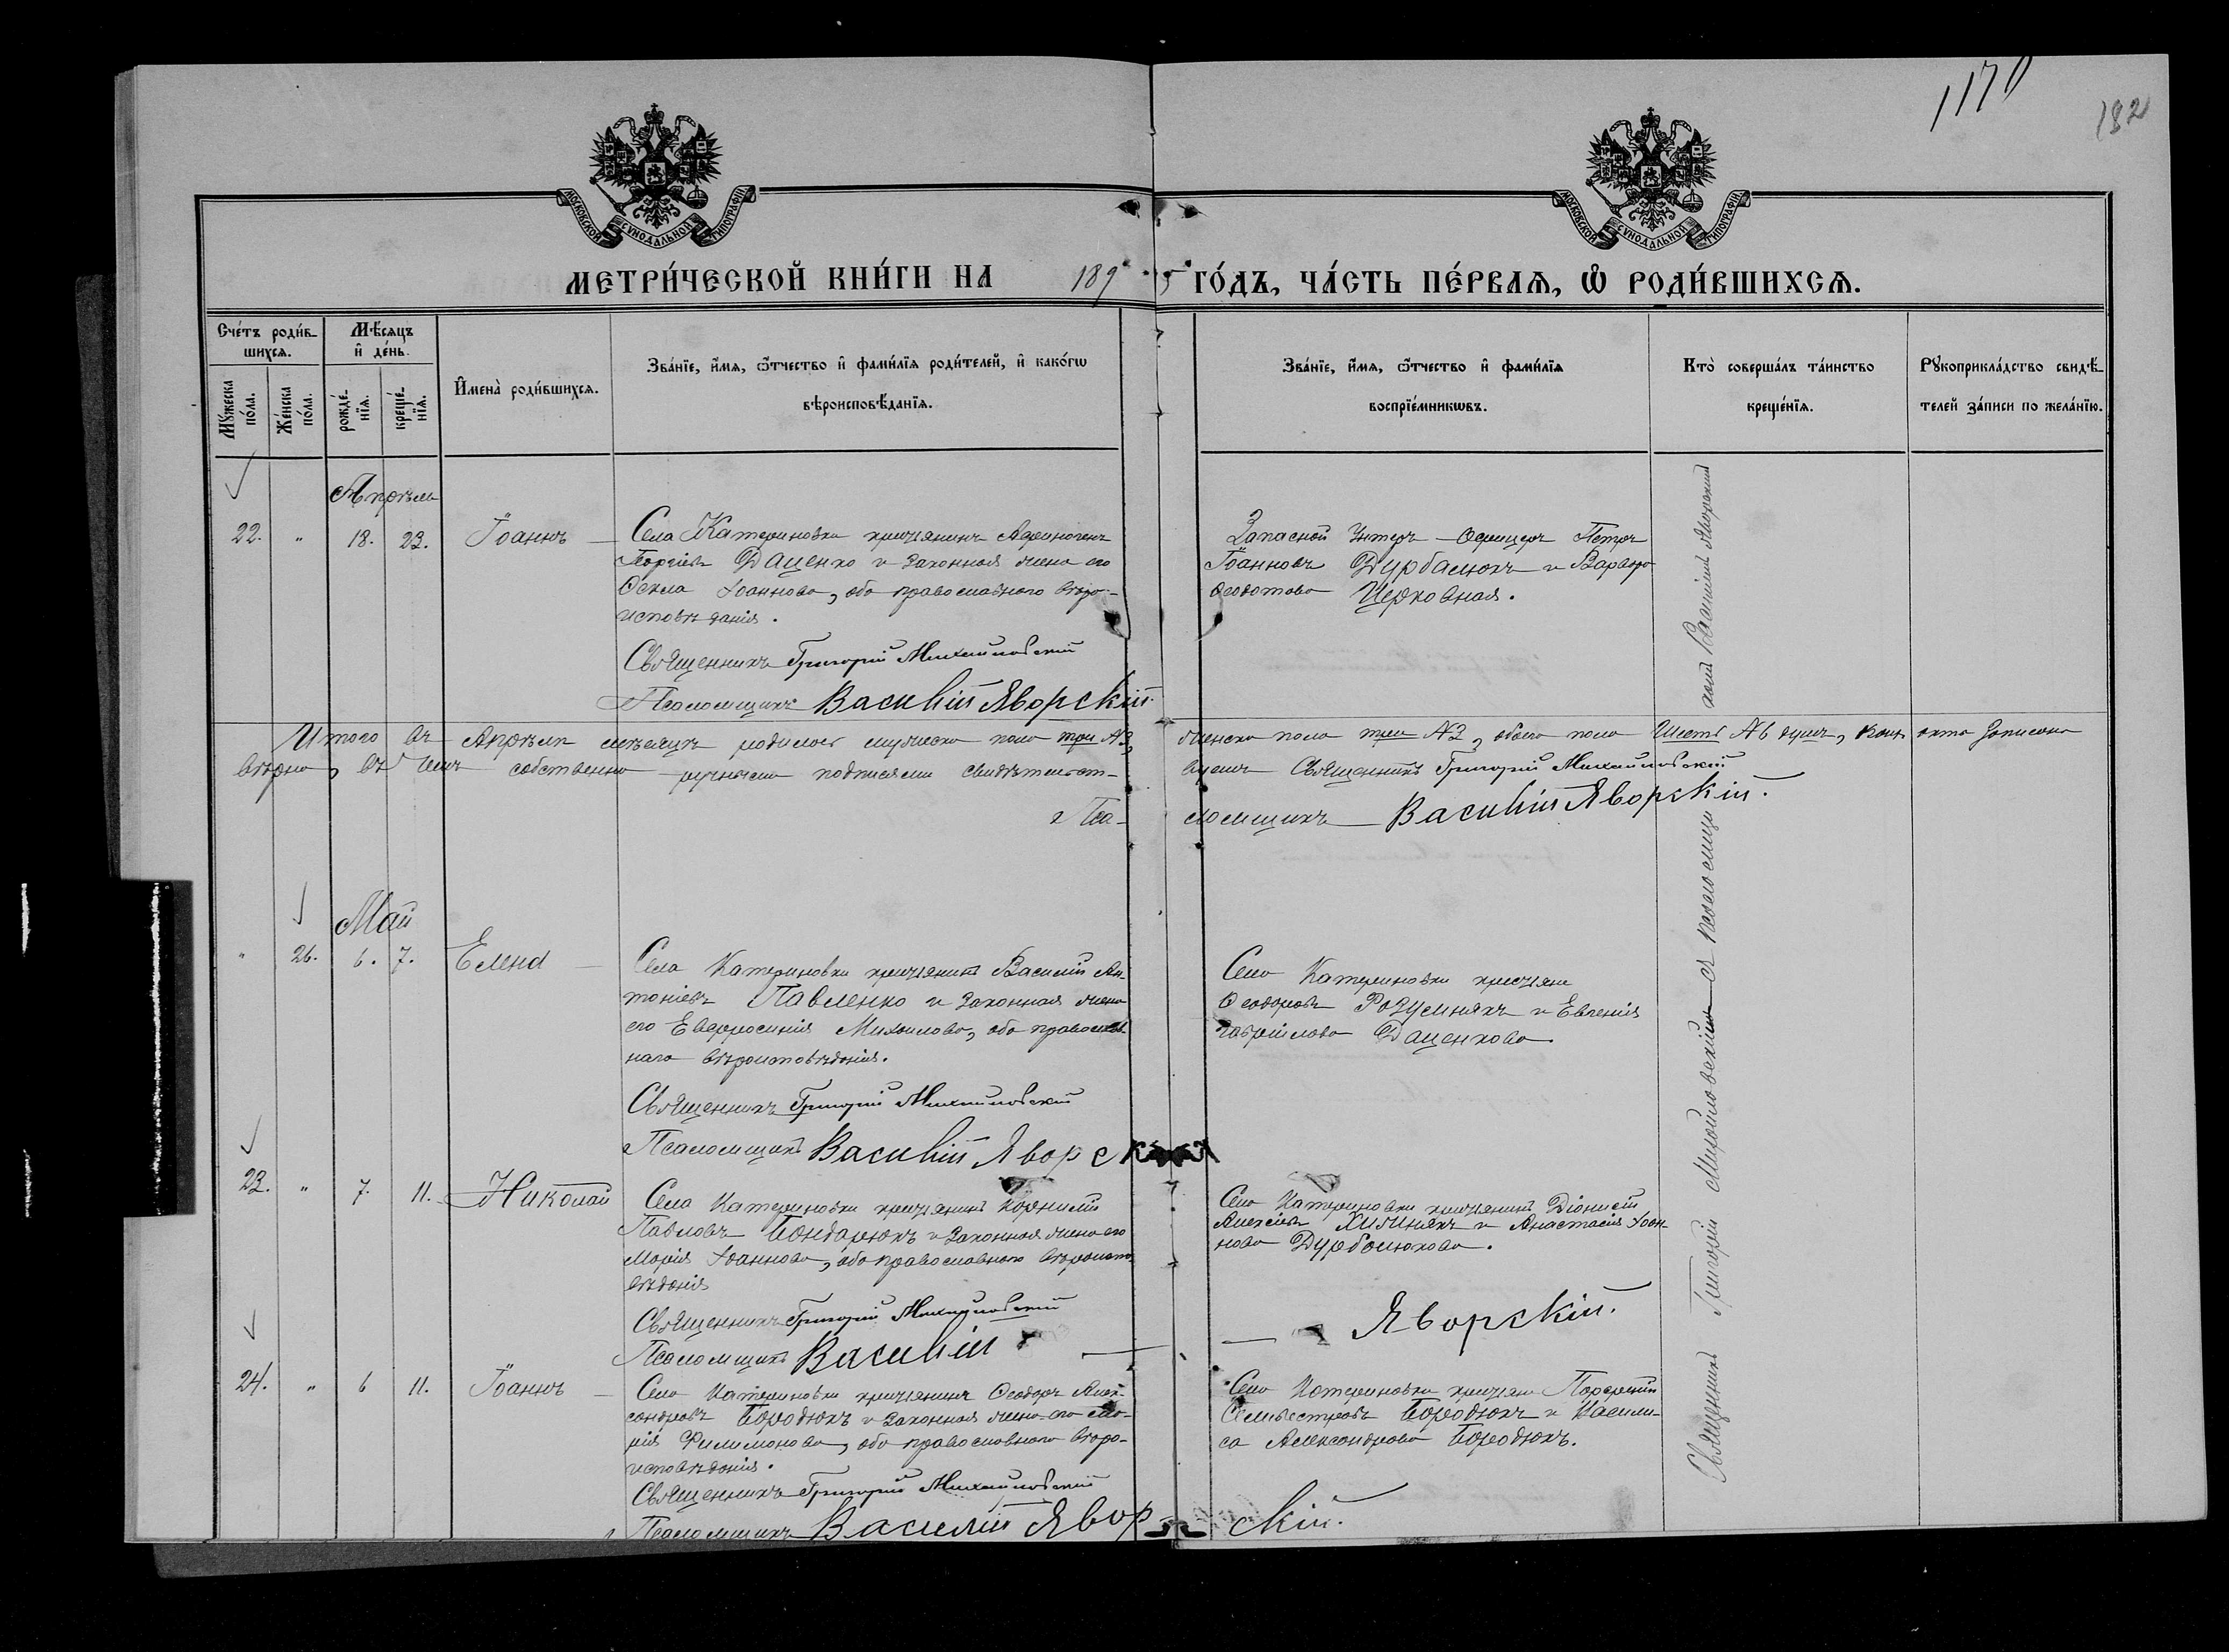 1170
182
МОСКОВСКОЙ СѴНОДАЛЬНОЙ ТИПОГРАФІИ
МОСКОВСКОЙ СѴНОДАЛЬНОЙ ТИПОГРАФІИ
МЕТРИ́ЧЕСКОЙ КНИ́ГИ НА 1895 ГО́ДЪ, ЧА́СТЬ ПЕ́РВАѦ, Ѡ҆ РОДИ́ВШИХСѦ.
Сче́тъ роди́в-
шихсѧ.
Мꙋ́жеска по́ла.
Же́нска по́ла.
Мѣ́сѧцъ
и҆ де́нь.
рожде́-нїѧ.
креще́-нїѧ.
И҆мена̀ роди́вшихсѧ.
Зва́нїе, и҆́мѧ, ѻ҆́тчество и҆ фами́лїѧ роди́телей, и҆ како́гѡ
вѣроисповѣ́данїѧ.
Зва́нїе, и҆́мѧ, ѻ҆́тчество и҆ фами́лїѧ
воспрїе́мникѡвъ.
Кто̀ соверша́лъ та́инство
креще́нїѧ.
Рꙋкоприкла́дство свидѣ́-
телей за́писи по жела́нїю.
Апрѣль
22. " 18. 23. Іоаннъ
Села Катериновки крестянинъ Афиногенъ
Георгіевъ Даценко и законная жена его
Текла Іоаннова, оба православного вѣро-
исповѣданія.
Священникъ Григорій Михайловскій
Псаломщикъ Василій Яворскій.
Запасной Унтеръ-Офицеръ Петръ
Іоанновъ Дурбалюкъ и Варвара
Ѳеодотова Церковная.
Итого въ Апрѣлѣ мѣсяцѣ родилось мужеска пола три №3, женска пола три №3, обоего пола шесть №6 душъ, записано
вѣрно, въ чемъ собственно-ручнымъ подписемъ свидѣтельст-вуемъ Священникъ Григорій Михайловскій
Пса-ломщикъ Василій Яворскій.
Май
" 26. 6. 7. Елена
Села Катериновки крестянинъ Василій Ан-
тоніевъ Павленко и законная жена
его Евфросинія Михаилова, оба православ-
наго вѣроисповѣданія.
Священникъ Григорій Михайловскій
Псаломщикъ Василій Яворск
Села Катериновки крестяне
Розумнякъ и Евгенія
Гавріилова Даценкова.
23. " 7. 11. Николай
Села Катериновки крестянинъ Корнилій
Павловъ Бондарюкъ и законная жена его
Марія Іоаннова, оба православного вѣроиспо-
вѣданія
Священникъ Григорій Михайловскій
Псаломщикъ Василій Яворскій.
Села Катериновки крестянинъ Діонисій
Алексіевъ и Анастасія Іоан-
нова Дурбалюкова.
24. " 6 11. Іоаннъ
Села Катериновки крестянинъ Ѳеодоръ Алек-
сандровъ Бородюкъ и законная жена его Ма-
рія Филимонова, оба православного вѣро-
исповѣданія.
Священникъ Григорій Михайловскій
Псаломщикъ Василій Яворскій.
Села Катериновки крестяне Порфирій
Селивестровъ Бородюкъ и Васили-
са Александрова Бородюкъ.
Священникъ Григорій Михайловскій съ псаломщикомъ Василіемъ Яворскимъ